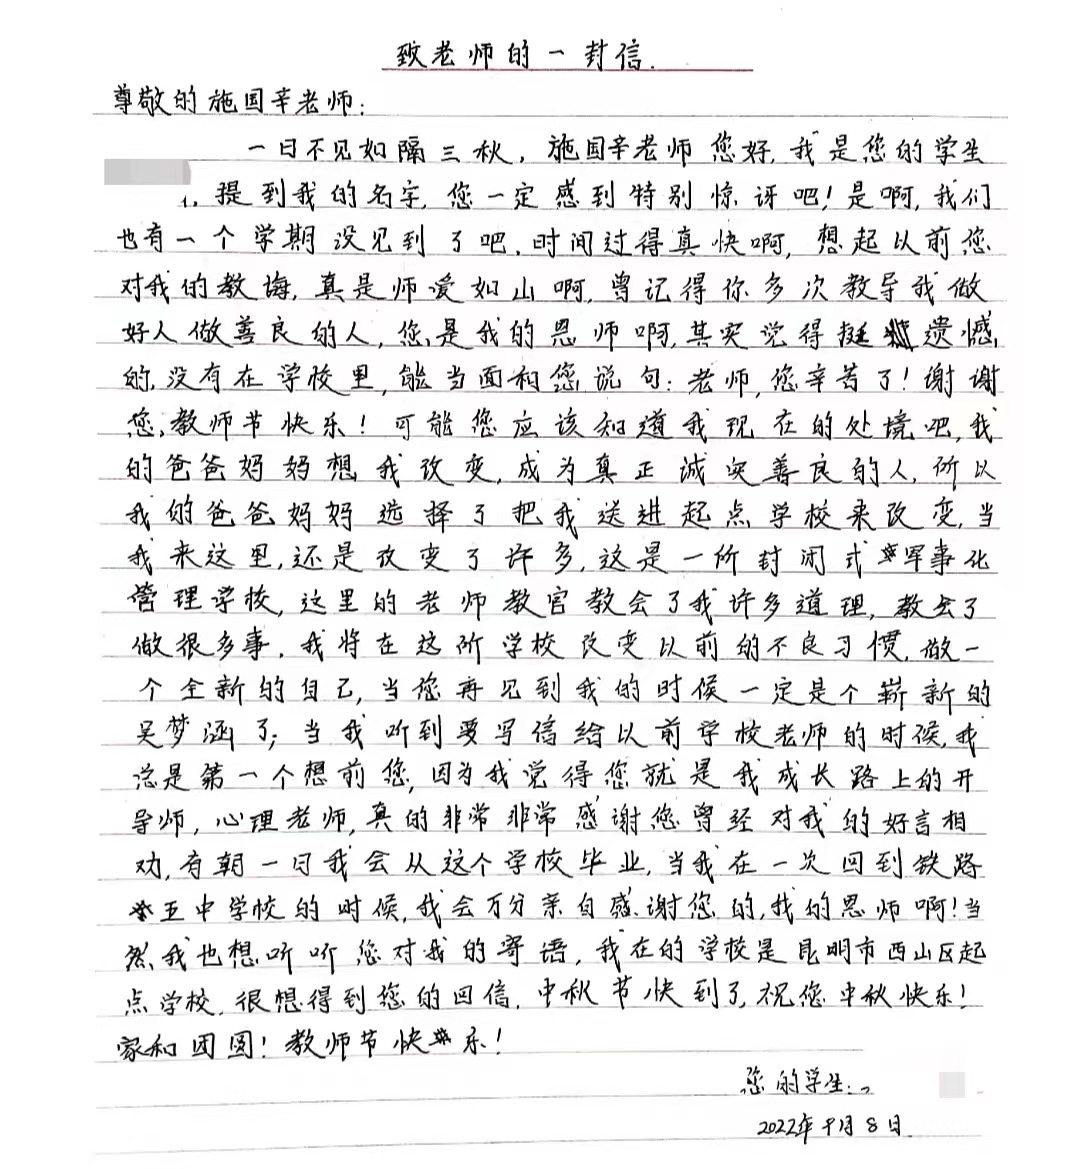 致老师的一封信.
尊敬的施国辛老师:
一日不见如隔三秋，施国辛老师您好,我是您的学生
提到我的名字,您一定感到特别惊讶吧!是啊,我们
也有一个学期没见到了吧,时间过得真快啊,想起以前您
对我的教诲,真是师爱如山啊,曾记得你多次教导我做
好人做善良的人,您是我的恩师啊,其实觉得挺遗憾
的,没有在学校里,能当面和您说句:老师,您辛苦了!谢谢
您,教师节快乐!可能您应该知道我现在的处境吧,我
的爸爸妈妈想我改变,成为真正诚实善良的人,所以
我的爸爸妈妈选择了把我送进起点学校来改变,当
我来这里,还是改变了许多,这是一所封闭式军事化
管理学校,这里的老师教官教会了我许多道理,教会了
做很多事.我将在这所学校改变以前的不良习惯,做一
个全新的自己,当您再见到我的时候一定是个崭新的
吴梦涵了;当我听到要写信给以前学校老师的时候,我
总是第一个想前您,因为我觉得您就是我成长路上的开
导师,心理老师,真的非常非常感谢您曾经对我的好言相
劝,有朝一日我会从这个学校毕业,当我在一次回到铁路
五中学校的时候,我会万分亲自感谢您的,我的恩师啊!当
然我也想听听您对我的寄语,我在的学校是昆明市西山区起
点学校,很想得到您的回信.中秋节快到了,祝您中秋快乐!
家和团圆!教师节快乐!
您的学生:
2022年9月8日